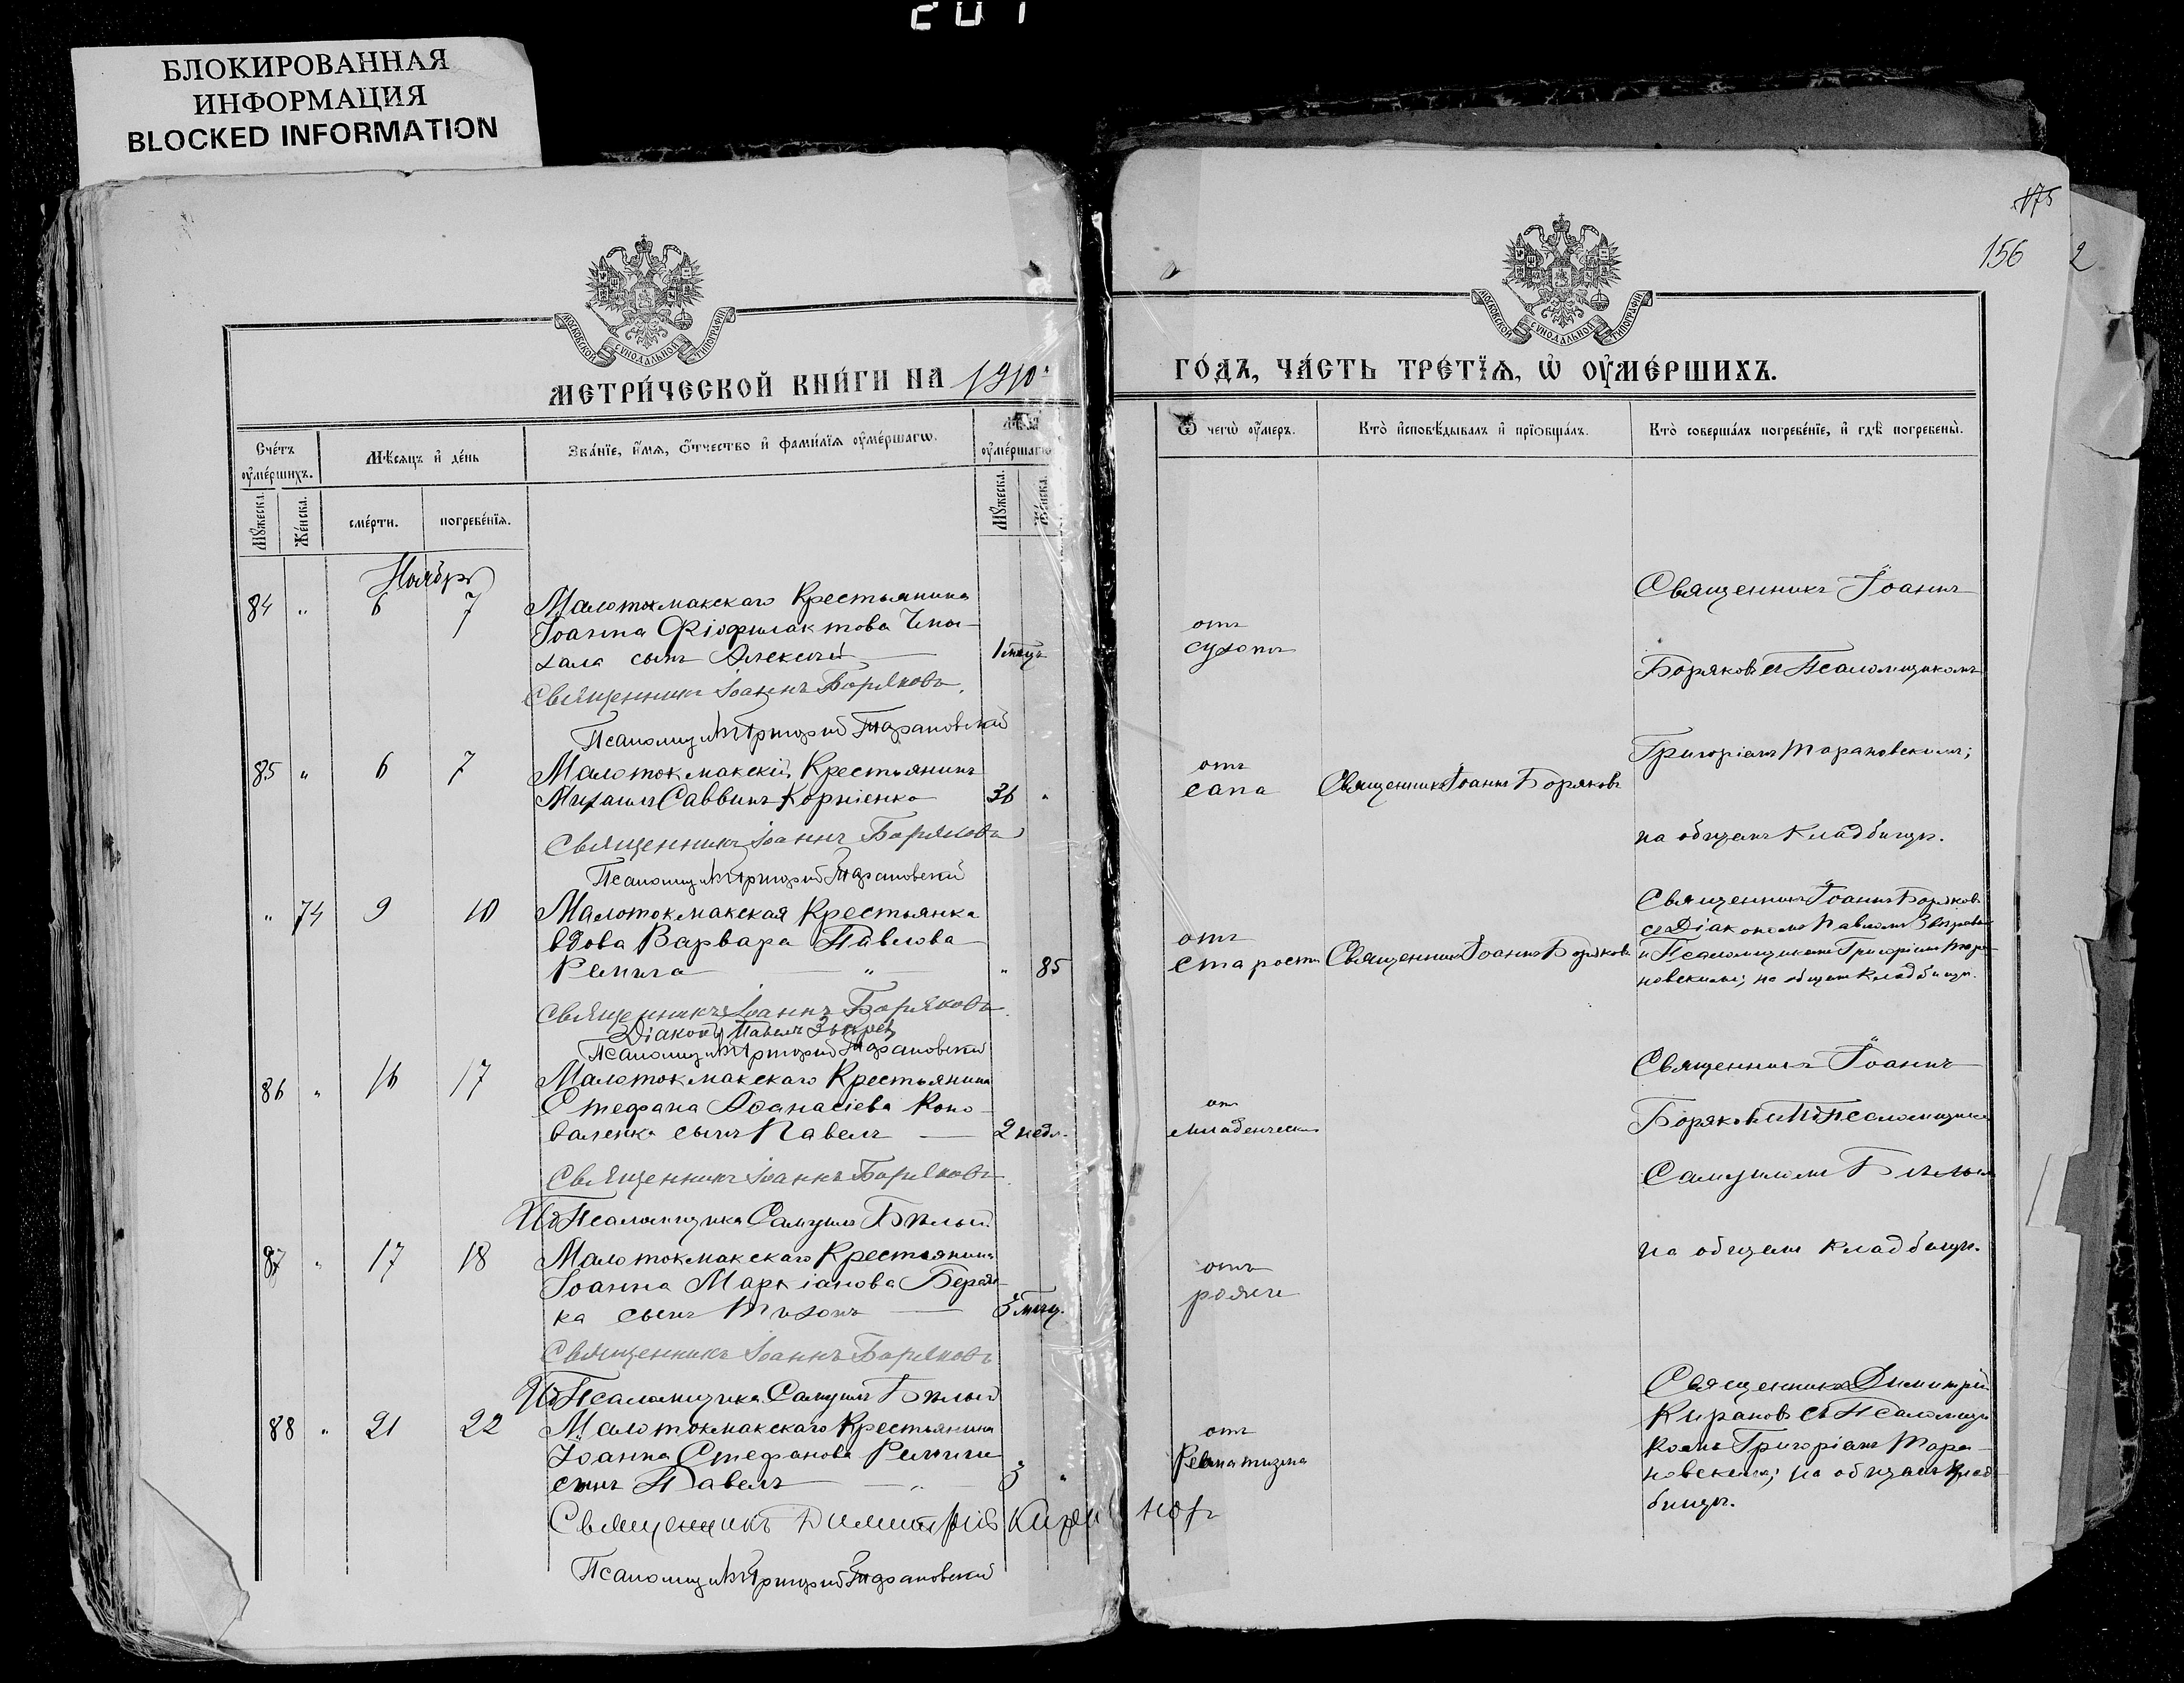 201
БЛОКИРОВАННАЯ
ИНФОРМАЦИЯ
BLOCKED INFORMATION
175
156
2
МОСКОВСКОЙ СѴНОДАЛЬНОЙ ТИПОГРАФІИ
МОСКОВСКОЙ СѴНОДАЛЬНОЙ ТИПОГРАФІИ
МЕТРИ́ЧЕСКОЙ КНИ́ГИ НА 1910
ГО́ДЪ, ЧА́СТЬ ТРЕ́ТЇѦ, Ѡ҆ ОУ҆МЕ́РШИХЪ.
Сче́тъ оу҆ме́ршихъ.
Мѣ́сяцъ и҆ де́нь
Зва́нїе, и҆́мѧ, ѻ҆́тчество и҆ фами́лїѧ оу҆ме́ршагѡ.
Лѣ́та оу҆ме́ршагѡ
Мꙋ́жеска.
Же́нска.
сме́рти.
погребе́нїѧ.
Мꙋ́жеска.
Же́нска.
Ѿ чегѡ̀ оу҆́меръ.
Кто̀ и҆сповѣ́дывалъ и҆ прїѡбща́лъ.
Кто̀ соверша́лъ погребе́нїе, и҆ гдѣ̀ погребены̀.
Ноябрь
84 " 6 7 Малотокмакскаго Крестьянина
Іоанна Фіофилактова
сынъ Алексѣй — 1 мѣсц.
Священникъ Іоаннъ Боряковъ.
Псаломщикъ Григорій Тарановскій
отъ
сухотъ
Священникъ Іоаннъ
Боряковъ съ Псаломщикомъ
Григоріемъ Тарановскимъ;
на общемъ кладбищѣ.
85 " 6 7 Малотокмакскій Крестьянинъ
Михаилъ Саввинъ Корніенко 36 "
Священникъ Іоаннъ Боряковъ
Псаломщикъ Григорій Тарановскій
отъ
сапа
Священникъ Іоаннъ Боряковъ
" 74 9 10 Малотокмакская Крестьянка
вдова Варвара Павлова
Репила " " 85
Священникъ Іоаннъ Боряковъ.
Діаконъ Павелъ
Псаломщикъ Григорій Тарановскій
отъ
старости
Священникъ Іоаннъ Боряковъ
Священникъ Іоаннъ Боряковъ
съ Діакономъ Павломъ
и Псаломщикомъ Григоріемъ Тара-
новскимъ; на общемъ кладбищѣ.
86 " 16 17 Малотокмакскаго Крестьянина
Стефана Аѳанасіева Коно-
валенка сынъ Павелъ — 2 недл.
Священникъ Іоаннъ Боряковъ.
И д Псаломщика Самуилъ Бѣлый
отъ
младенческ.
Священникъ Іоаннъ
Боряковъ съ И д Псаломщика
Самуиломъ Бѣлымъ
на общемъ кладбищѣ.
87 " 17 18 Малотокмакскаго Крестьянина
Іоанна Маркіанова
ка сынъ Тихонъ — 3 мѣсц.
Священникъ Іоаннъ Боряковъ
И д Псаломщика Самуилъ Бѣлый
отъ
рожи
88 " 21 22 Малотокмакскаго Крестьянина
Іоанна Стефанова
сынъ Павелъ — " — 3 "
Священникъ Димитрій Кирановъ
Псаломщикъ Григорій Тарановскій
отъ
Ревматизма
Священникъ Димитрій
Кирановъ съ Псаломщи
комъ Григоріемъ Тара-
новскимъ; на общемъ клад-
бищѣ.